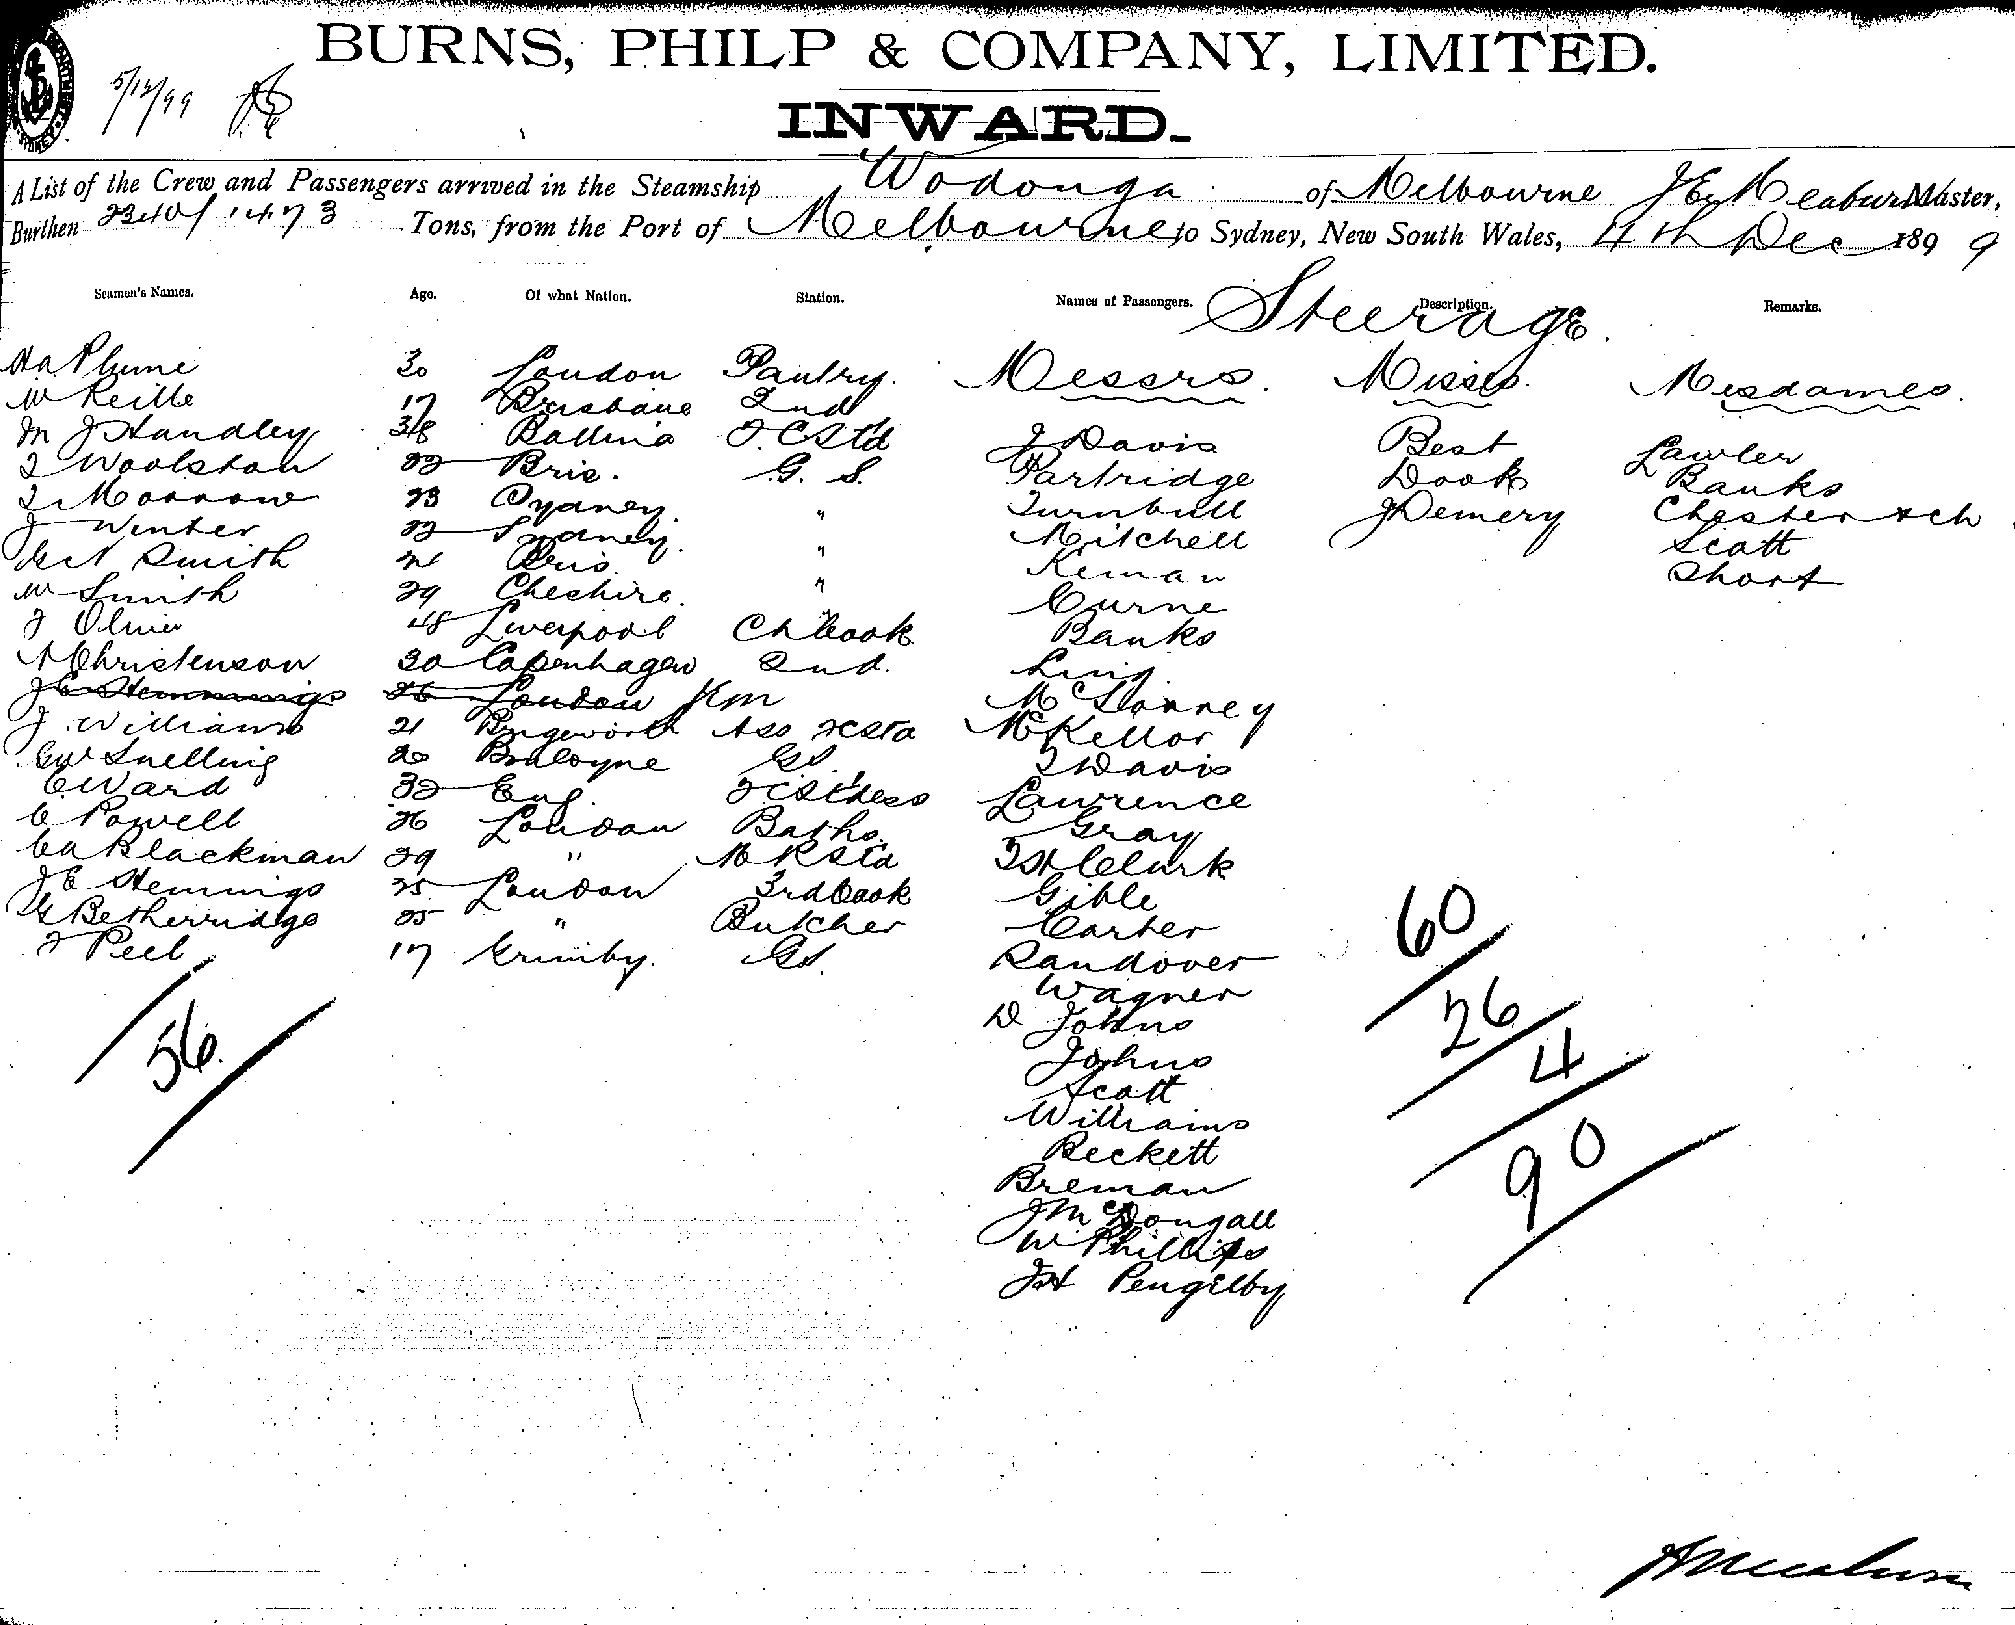 BURNS, PHILP & COMPANY, LIMITED.
5/12/99
INWARD.
A List of the Crew and Passengers arrived in the Steamship Wodonga of Melbourne J E Meaburn Master,
Burthen 2341/1473 Tons, from the Port of Melbourne to Sydney, New South Wales, 4th Dec 1899
Seamen's Names. Age. Of what Nation. Station. Names of Passengers. Description. Remarks.
Steerage
Plume 30 London Pantry. Messrs. Misses. Mesdames.
W 17 Brisbane 2nd
M J Handley 38 Ballina F C Std J Davis Best Lawler
Woolston 22 Bris. G. S. Partridge Dook Banks
Morrow 23 Sydney. " Turnbull J Demery Chester & ch
J Winter 22 Sydney. " Mitchell Scott
Smith 21 Bris. " Short
W Smith 29 Cheshire. " Curne
48 Liverpool Ch Cook Banks
A Christenson 30 Copenhagen 2nd. Ling
J E Stemmings 26 London
J Williams 21 McKellor
Snelling 20 GS. Davis
E Ward 32 Eng. F C Stdess Lawrence
C Powell 26 London Baths. Gray
Blackman 29 " Clark
J E Stemmings 25 London 3rd Cook Gible
G Betherridge 25 " Butcher Carter
Peel 17 Grimby. GS. Randover
Wagner
D Johns
Johns
Scott
Williams
Beckett
Breman
J McDougall
W Phillips
J H Pengilby
56
60
26
4
90